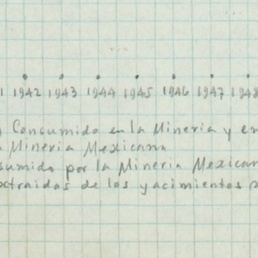 1 1942 1943 1944 1945 1946 1947 1948
) Consumido en la Mineria y en
Mineria Mexicana
sumido por la Mineria Mexican
xtraidas de los yacimientos